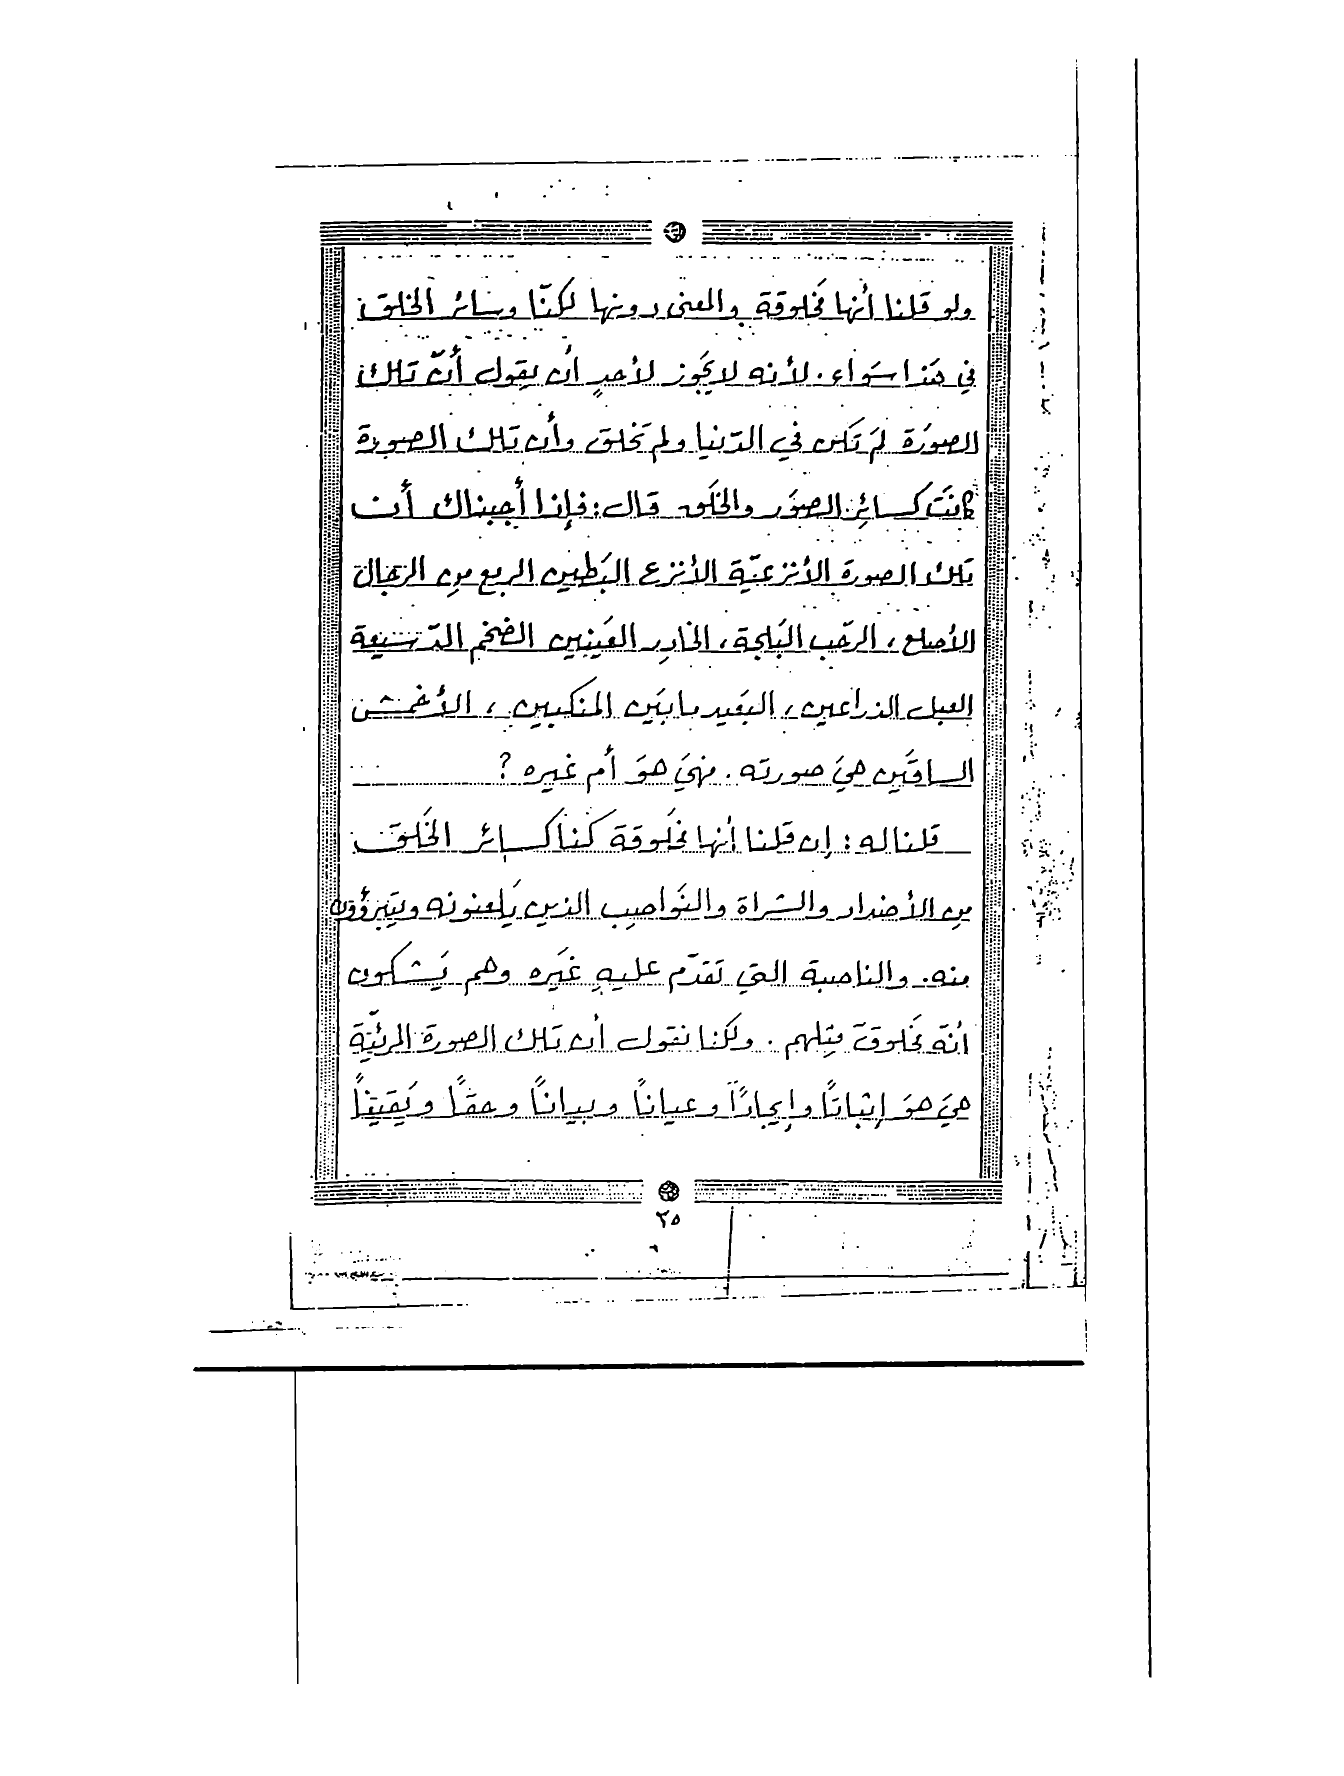 ولو قلنا أنها مخلوقة والمعنى دونها لكنّا وسائر الخلق
في هذا سَواء. لأنه لا يَجوز لأحدٍ أن يقول أنّ تلك
الصورَة لمَ تَكن في الدّنيا ولم تَخلق وأن تلك الصورة
كانَت كسائِر الصوَر والخَلق قال: فإذا أجبناك أن
تلك الصورة الأنزعيّة الأنزع البَطين الربع من الرجال
الأصلع، الرحَب البَلجة، الخادِر العَينين الضخم الدّسيعة
العبل الذراعين، البَعيد ما بَين المنكبين، الأخمش
الساقَين هيَ صورته. فهيَ هوَ أم غيره ?
قلنا له: إن قلنا أنها مخَلوقة كنا كسائر الخَلق
من الأضداد والشراة والنَواصِب الذين يَلعنونه ويَتبرؤون
منه. والناصبة التي تَقدّم عليهِ غَيره وهم يَشكون
أنّه مَخلوق مِثلهم. ولكنا نقول أن تلك الصورة المرئيّة
هيَ هوَ إثباتاً وإيجاداً وعياناً وبياناً وحقاً ويَقيناً
٢٥